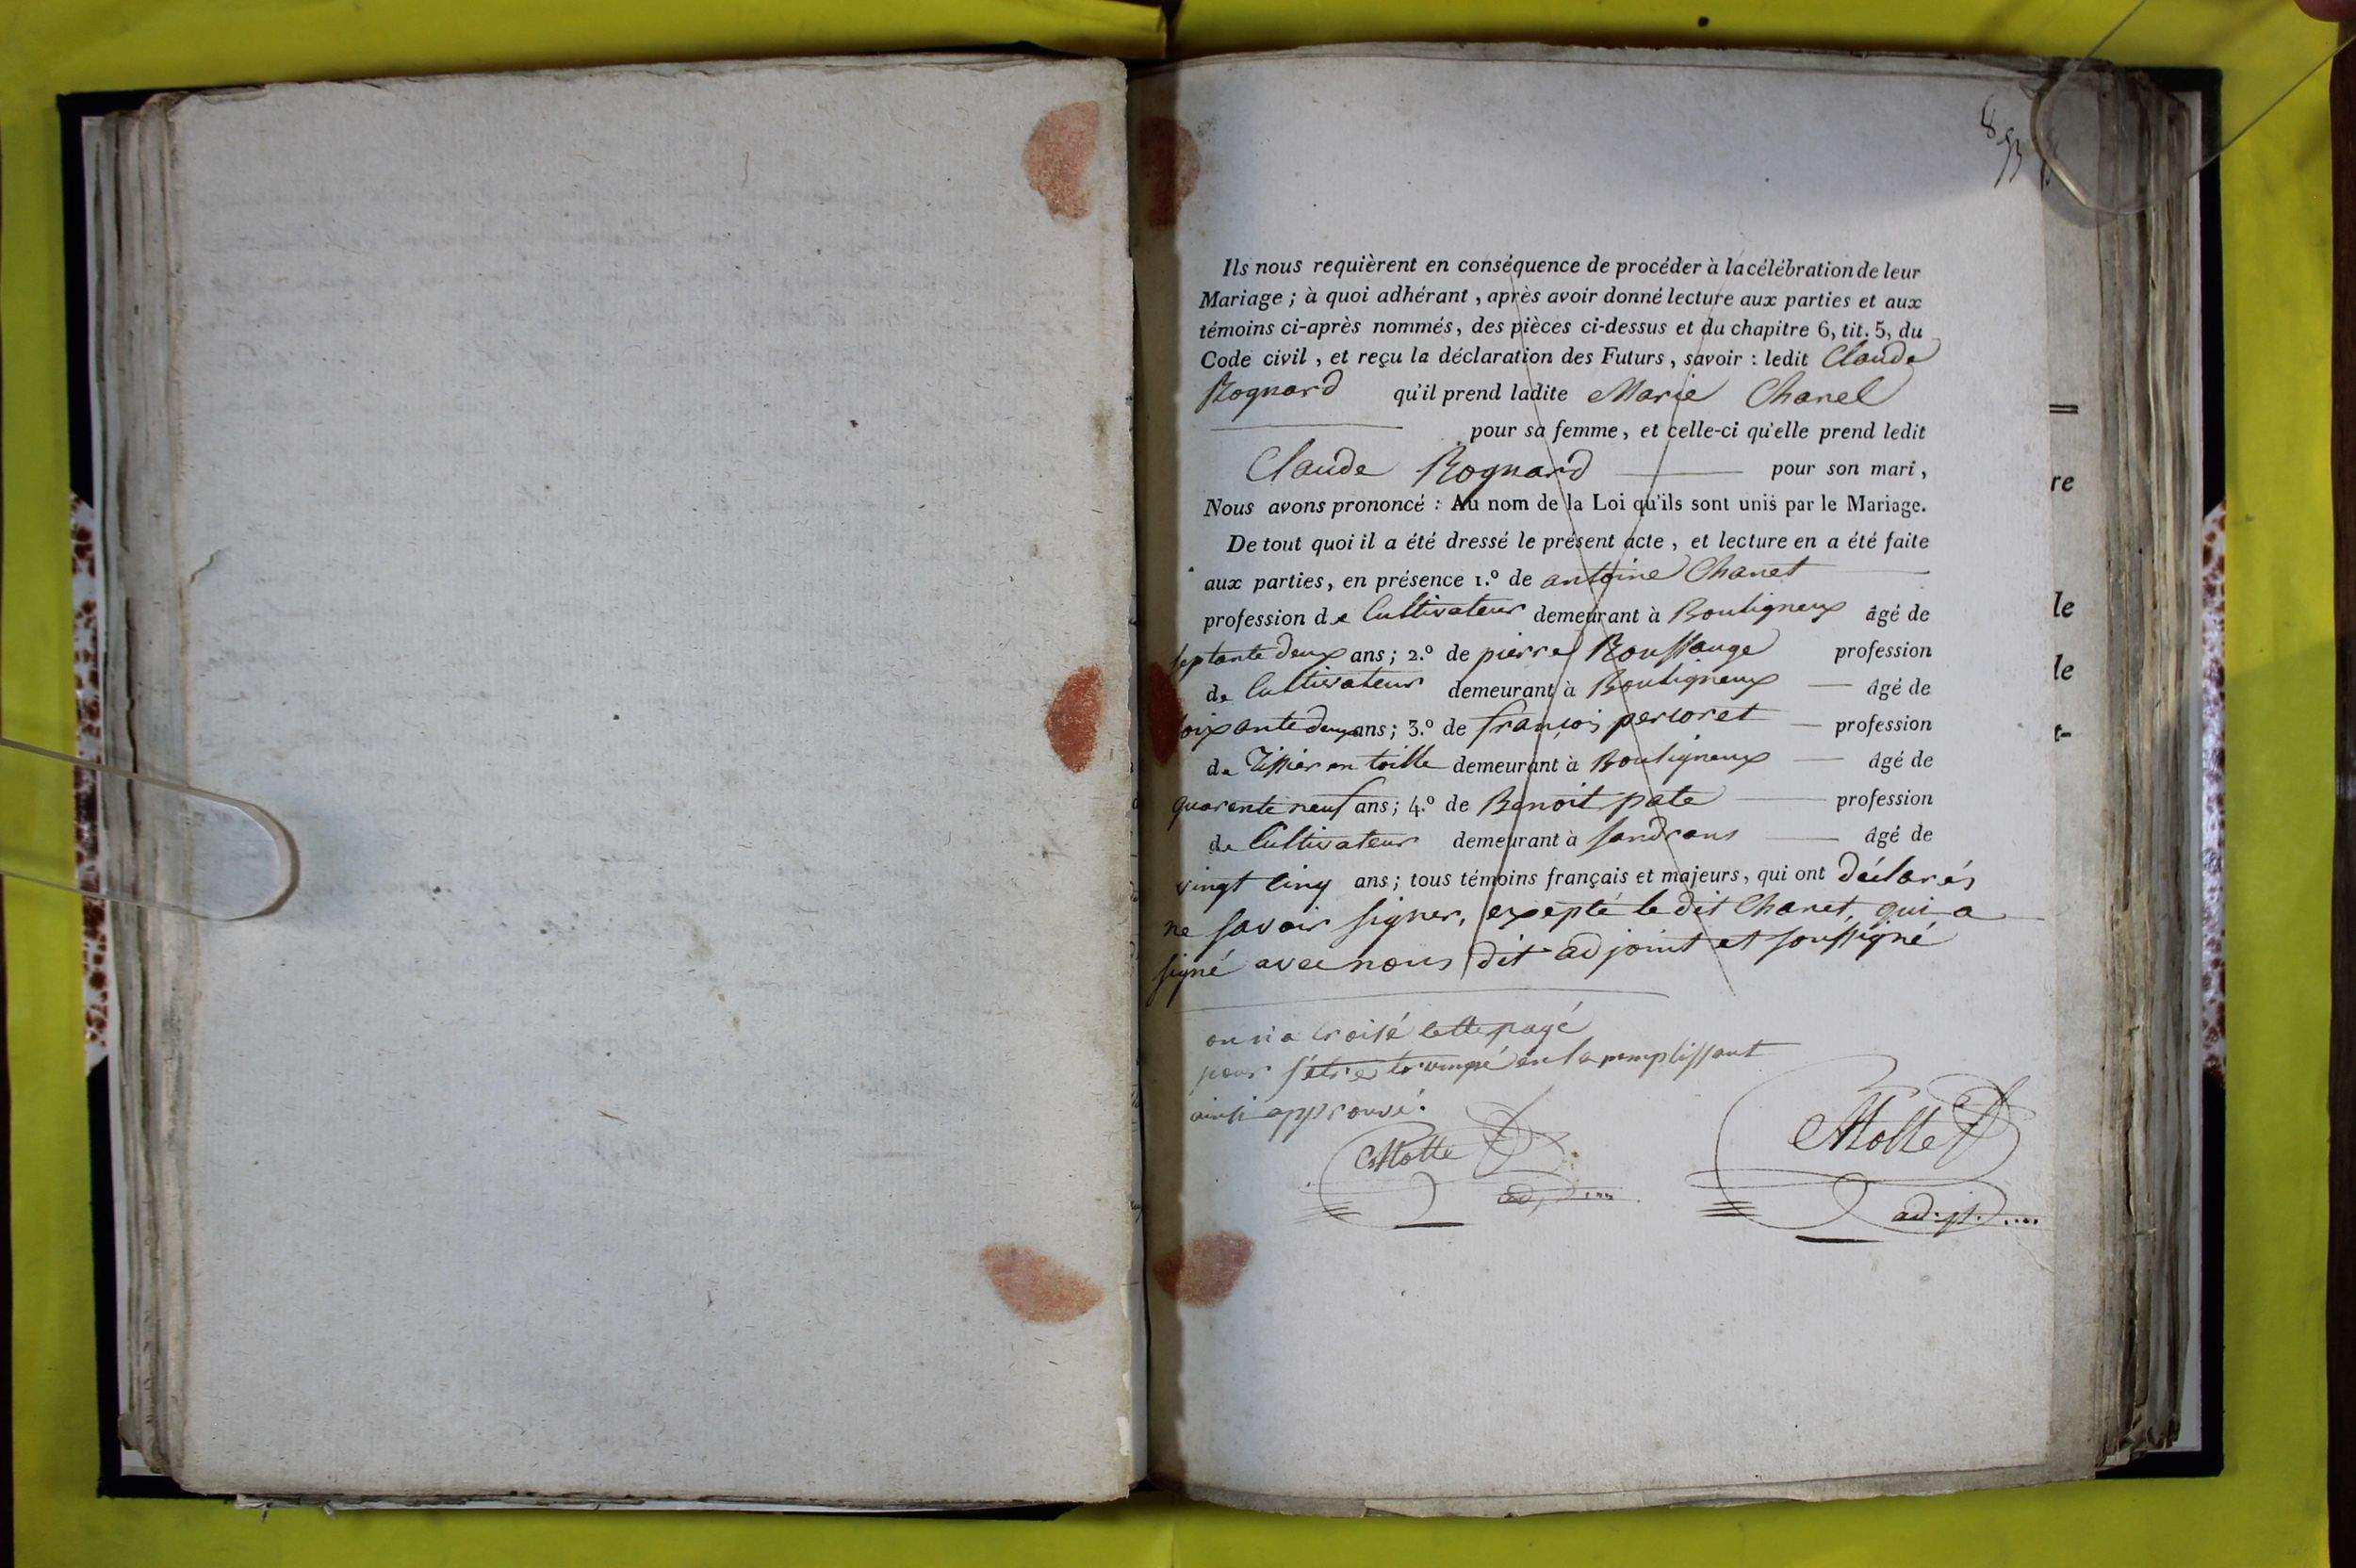 8
93
Ils nous requièrent en conséquence de procéder à la célébration de leur
Mariage ; à quoi adhérant , après avoir donné lecture aux parties et aux
témoins ci-après nommés, des pièces ci-dessus et du chapitre 6, tit. 5, du
Code civil , et reçu la déclaration des Futurs , savoir : ledit Claude
Rognard qu'il prend ladite Marie Chanel
pour sa femme, et celle-ci qu'elle prend ledit
Claude Rognard pour son mari ,
Nous avons prononcé : Au nom de la Loi qu'ils sont unis par le Mariage.
De tout quoi il a été dressé le présent acte , et lecture en a été faite
aux parties, en présence 1.º de antoine Chanet
profession de Cultivateur demeurant à Bouligneux âgé de
septante deux ans ; 2.º de pierre Roussange profession
de Cultivateur demeurant à Bouligneux âgé de
soixante deux ans ; 3.º de françois perroret profession
de Tissier en toille demeurant à Bouligneux âgé de
quarente neuf ans ; 4.º de Benoit pate profession
de Cultivateur demeurant à Sandrans âgé de
vingt cinq ans ; tous témoins français et majeurs, qui ont déclarés
ne savoir signer, exepté le dit Chanet, qui a
signé avec nous dit adjoint et soussigné
on n'a croisé cette pagé
pour s'être trompé en la remplissant
ainsi approuvé.
Motte
Motte
adj
re
le
le
t-